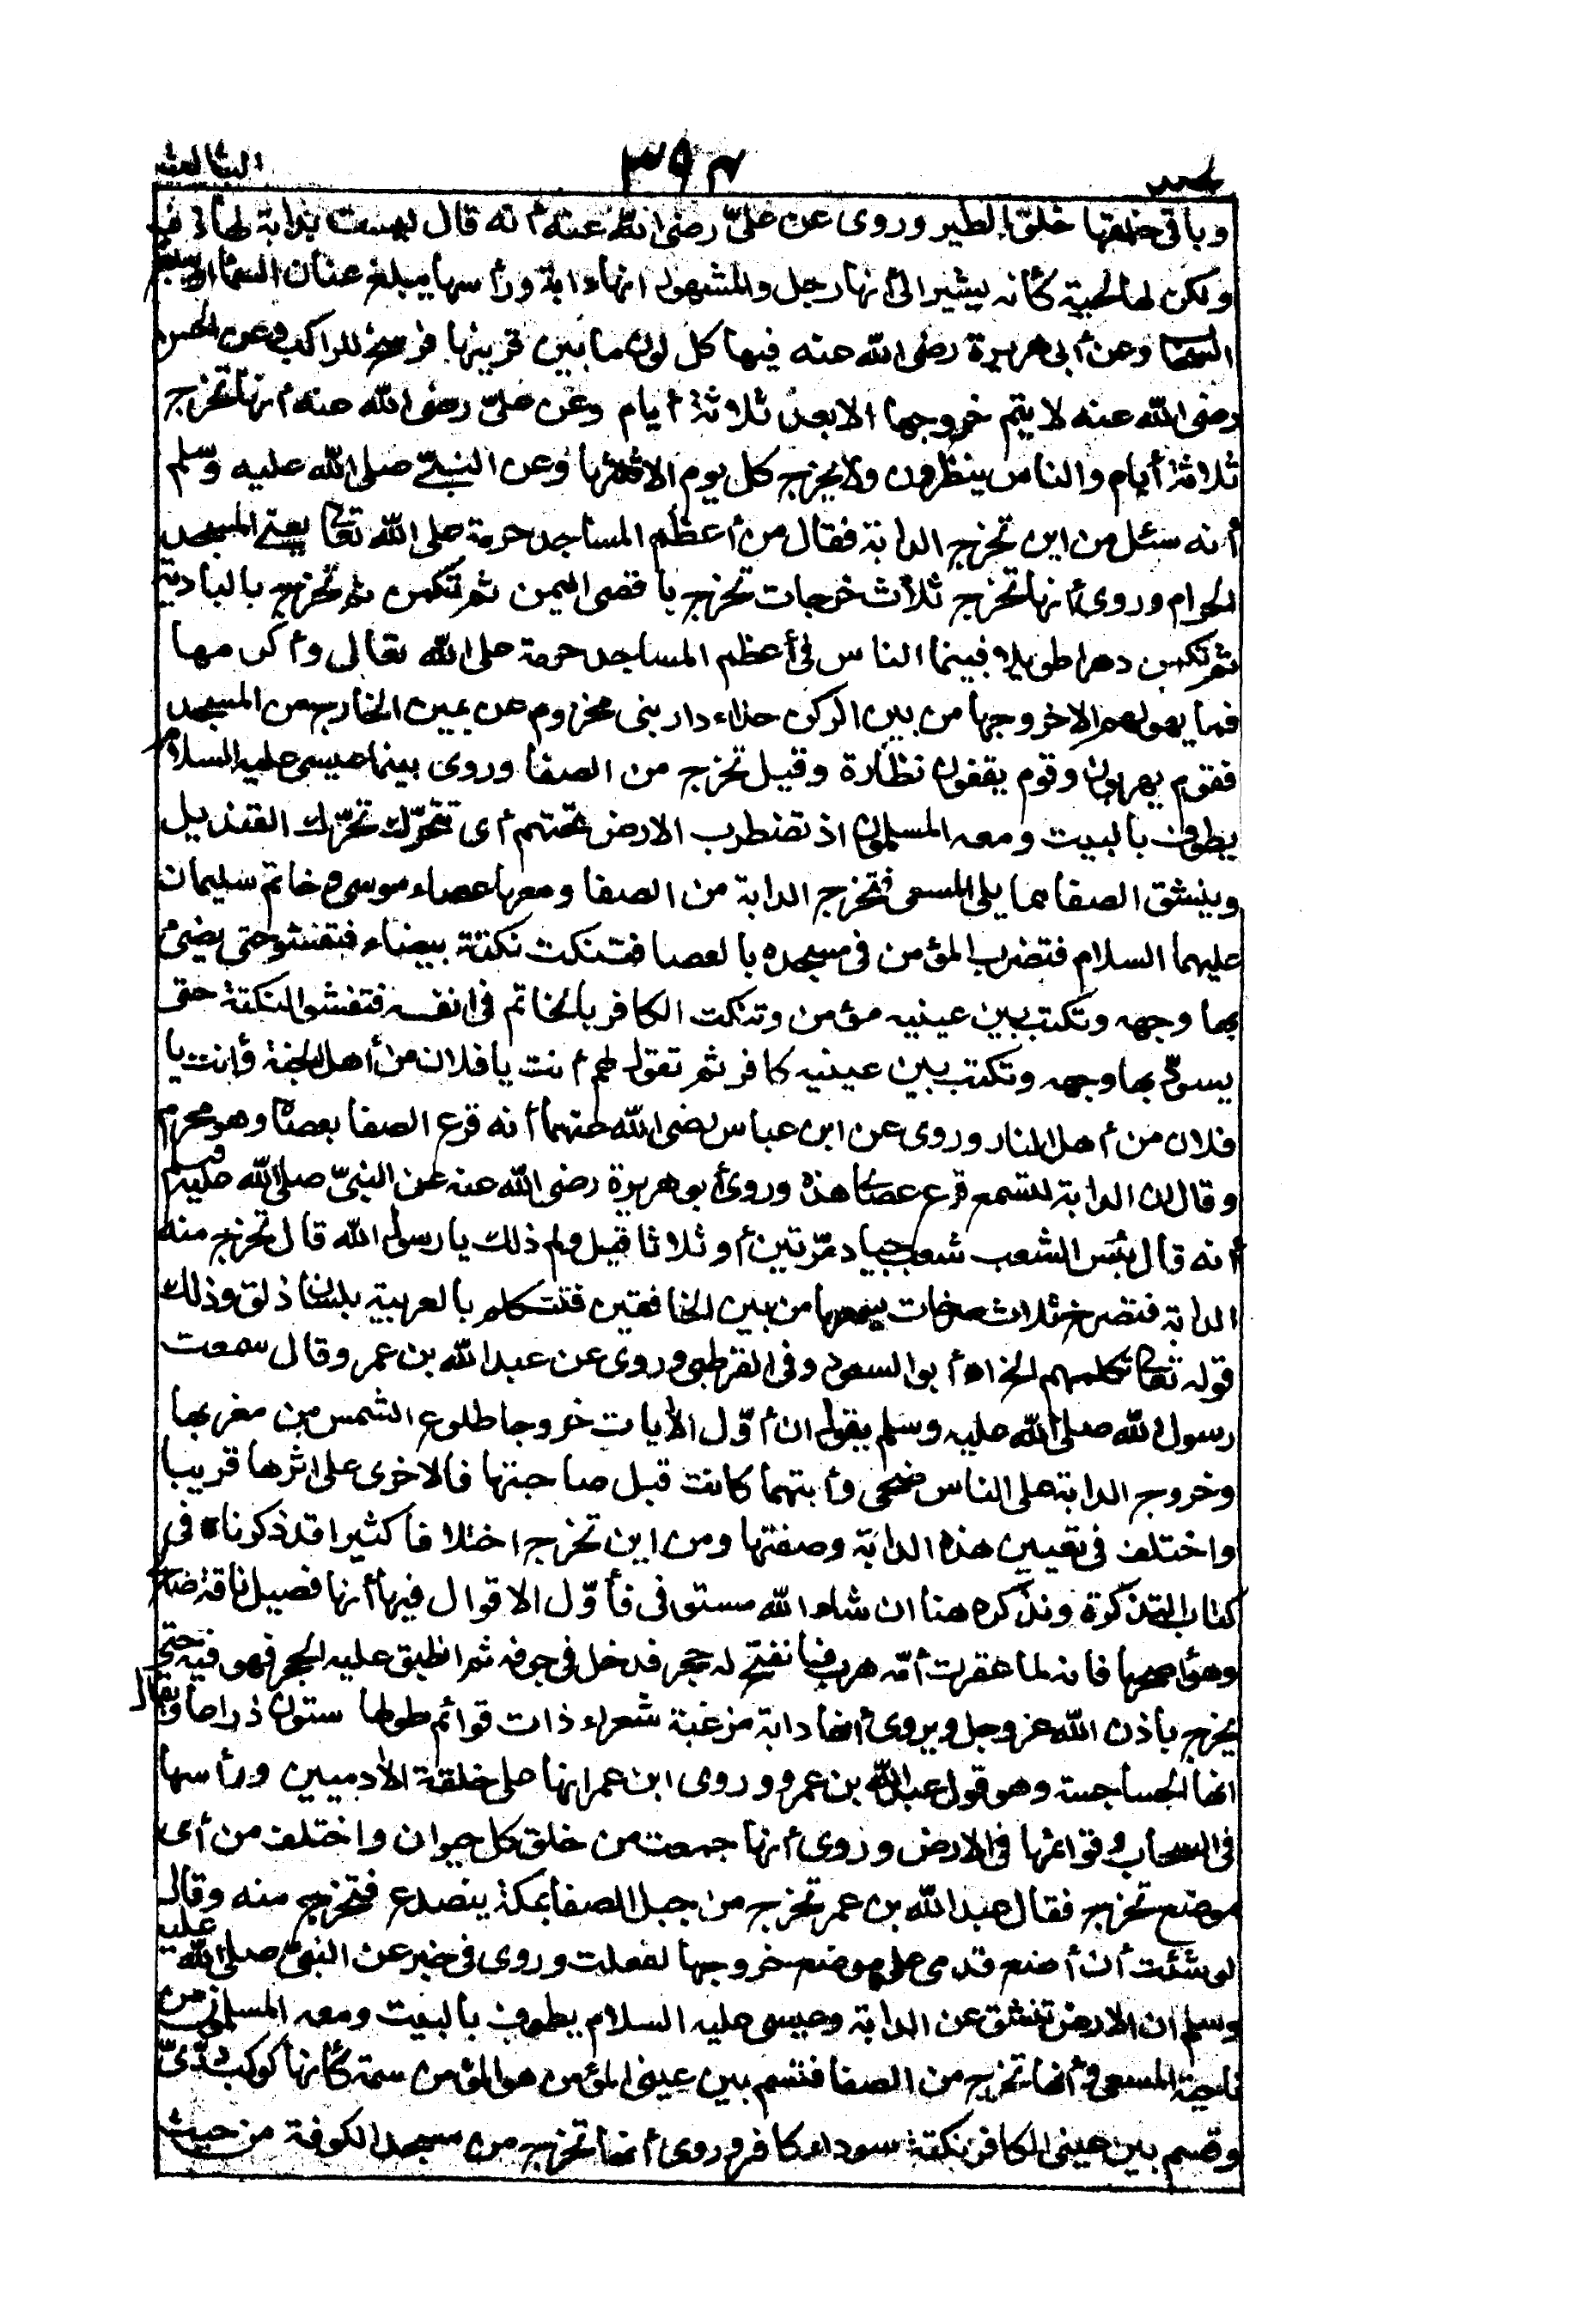 الثالث
٣٩٢
وباقي خلقها خلق الطير وروى عن علىّ رضى الله عنه أنه قال ليست بدابة لها ذنب
ولكن لها لحية كأنه يشير الى أنها رجل والمشهور انها دابة ورأسها يبلغ عنان السماء او يبلغ
السماء وعن أبى هريرة رضى الله عنه فيها كل لون ما بين قرينها فرسخ للراكب وعن الحسن
رضى الله عنه لا يتم خروجها الا بعد ثلاثة أيام وعن علىّ رضى الله عنه أنها تخرج
ثلاثة أيام والناس ينظرون ولا يخرج كل يوم الا ثلثها وعن النبىّ صلى الله عليه وسلم
أنه سئل من اين تخرج الدابة فقال من أعظم المساجد حرمة على الله تعالى يعنى المسجد
الحرام وروى أنها تخرج ثلاث خرجات تخرج بأقصى اليمن ثم تكمن ثم تخرج بالبادية
ثم تكمن دهرا طويلا فبينما الناس فى أعظم المساجد حرمة على الله تعالى وأكرمها
فما يهولهم الا خروجها من بين الركن حذاء دار بنى مخزوم عن يمين الخارج من المسجد
فقوم يهربون وقوم يقفون نظارة وقيل تخرج من الصفا وروى بينما عيسى عليه السلام
يطوف بالبيت ومعه المسلمون اذ تضطرب الارض تحتهم أى تتحرّك تحرّك القنديل
وينشق الصفا مما يلى المسعى فتخرج الدابة من الصفا ومعها عصاء موسى وخاتم سليمان
عليهما السلام فتضرب المؤمن فى مسجده بالعصا فتنكت نكتة بيضاء فتفشو حتى يضىء
بها وجهه وتكتب بين عينيه مؤمن وتنكت الكافر بالخاتم فى انفه فتفشو النكتة حتى
يسودّ بها وجهه وتكتب بين عينيه كافر ثم تقول لهم أنت يا فلان من أهل الجنة وأنت يا
فلان من أهل النار وروى عن ابن عباس رضى الله عنهما أنه قرع الصفا بعصاه وهو محرم
وقال ان الدابة لتسمع قرع عصاى هذه وروى أبو هريرة رضى الله عنه عن النبىّ صلى الله عليه وسلم
أنه قال بئس الشعب شعب جياد مرّتين أو ثلاثا قيل ولم ذلك يا رسول الله قال تخرج منه
الدابة فتصرخ ثلاث صرخات يسمعها من بين الخافقين فتتكلم بالعربية بلسان ذلق وذلك
قوله تعالى تكلمهم الخ اه أبو السعود وفى القرطبى وروى عن عبد الله بن عمر وقال سمعت
رسول الله صلى الله عليه وسلم يقول ان أوّل الأيات خروجا طلوع الشمس من مغربها
وخروج الدابة على الناس ضحى وأيتهما كانت قبل صاحبتها فالاخرى على اثرها قريبا
واختلف فى تعيين هذه الدابة وصفتها ومن اين تخرج اختلافا كثيرا قد ذكرناه فى
كتاب التذكرة ونذكره هنا ان شاء الله مستوفى فأوّل الاقوال فيها أنها فصيل ناقة صالح
وهو أصحها فانه لما عقرت أمّه هرب فانفتح له حجر فدخل فى جوفه ثم انطبق عليه الحجر فهو فيه حتى
يخرج باذن الله عز وجل ويروى أنها دابة مزغبة شعراء ذات قوائم طولها ستون ذراعا ويقال
انها الجساجسة وهو قول عبد الله بن عمرو وروى ابن عمر انها على خلقة الأدميين ورأسها
فى السحاب وقوائمها فى الارض وروى أنها جمعت من خلق كل حيوان واختلف من أى
موضع تخرج فقال عبد الله بن عمر تخرج من جبل الصفا بمكة ينصدع فتخرج منه وقال
لو شئت أن أضع قدمى على موضع خروجها لفعلت وروى فى خبر عن النبىّ صلى الله عليه
وسلم ان الارض تنشق عن الدابة وعيسى عليه السلام يطوف بالبيت ومعه المسلمون من
ناحية المسعى وأنها تخرج من الصفا فتسم بين عينى المؤمن هو المؤمن سمة كأنها كوكب درّىّ
وتسم بين عينى الكافر نكتة سوداء كافر وروى أنها تخرج من مسجد الكوفة من حيث